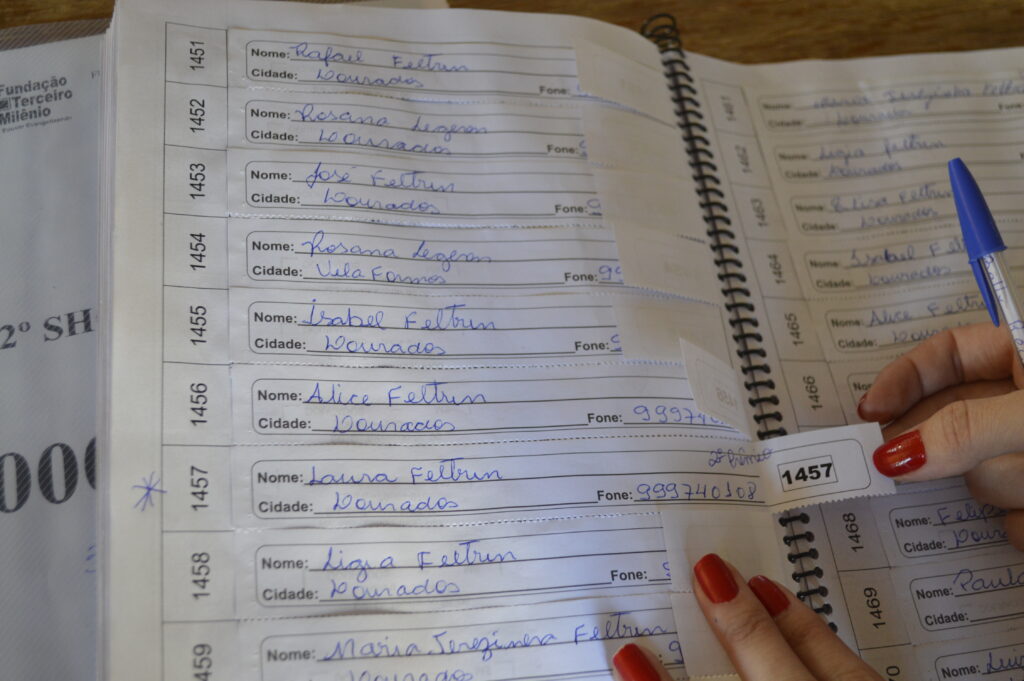 Fundação
Terceiro
Milênio
2º SH
000
1451
Nome: Rafael Feltrin
Cidade: Dourados Fone:
1452
Nome: Rosana Legeron
Cidade: Dourados Fone:
1453
Nome: José Feltrin
Cidade: Dourados Fone:
1454
Nome: Rosana Legeron
Cidade: Vila Formos Fone: 99
1455
Nome: Isabel Feltrin
Cidade: Dourados Fone:
1456
Nome: Alice Feltrin
Cidade: Dourados Fone: 99974
1457
Nome: Laura Feltrin 2º Prêmio
Cidade: Dourados Fone: 999740108
1457
1458
Nome: Ligia Feltrin
Cidade: Dourados Fone:
1459
Nome: Maria Terezinha Feltrin
Dourados
1461
Nome: Maria Terezinha
Cidade: Dourados
1462
Nome: Ligia Feltrin
Cidade: Dourados
1463
Nome: Elisa Feltrin
Cidade: Dourados
1464
Nome: Isabel Felt
Cidade: Dourados
1465
Nome: Alice Feltrin
Cidade: Dou
1466
No
1468
Nome: Felip
Cidade: Dour
1469
Nome: Paula
Cidade:
Nome: Lui